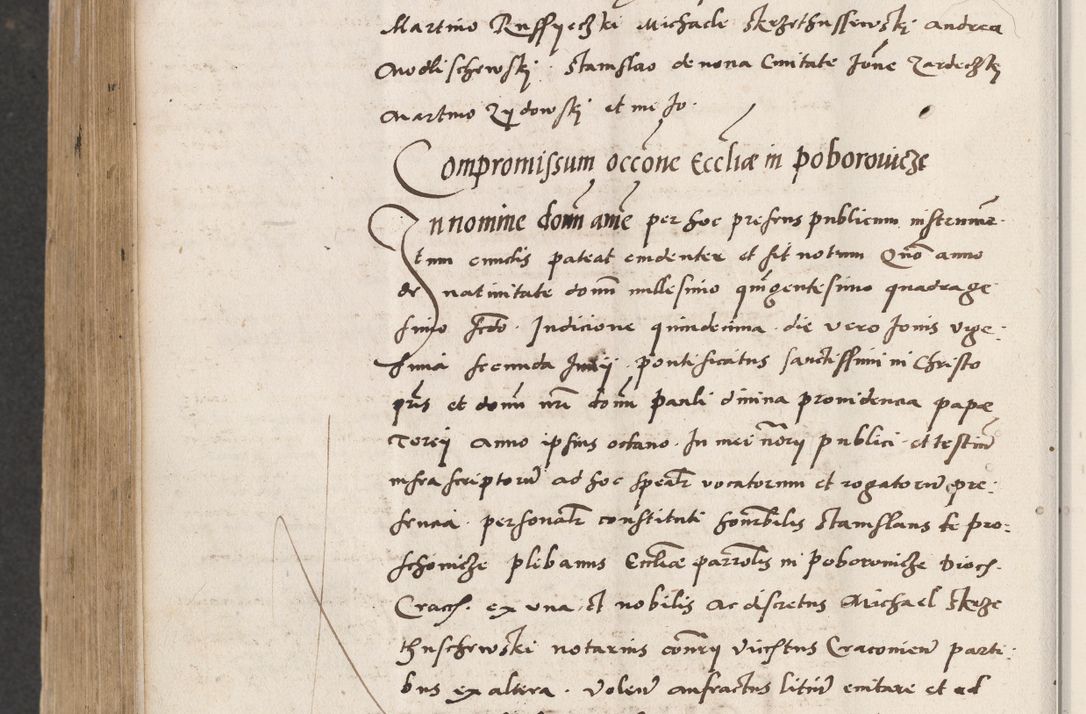 Martino Russyeczki Michaele Skrzethussewski Andrea
Modlischewskj Stanislao de nona Civitate Jone Zardeczkj
Martino Zydowskj et me Jo.
Compromissum occone Eccliae in poborovicze
In nomine domi ame per hoc presens publicum instrume
tum cunctis pateat evidenter et sit notum Quo anno
de nativitate domi millesimo quingentesimo quadrage
simo scdo. Indicione quindecima die vero Jovis vige:
sima secunda Junij pontificatus sanctissimi in Christo
pris et domi nri domi Pauli divina providencia papae
Tercij Anno ipsius octavo. In mei norij publici et testiu
infra scriptoru ad hoc spealr vocatorum et rogatoru pre:
sencia personalr constituti honorbilis Stanislaus de Pro:
schovicze plibanus Eccliae parrolis in Poborovicze Dioces.
Craccs. ex una et nobilis ac discretus Michael Skrze
thuschewski notarius conrij Vicestus Cracovien parti:
bus ex altera. Volen anfractus litiu evitare et ad